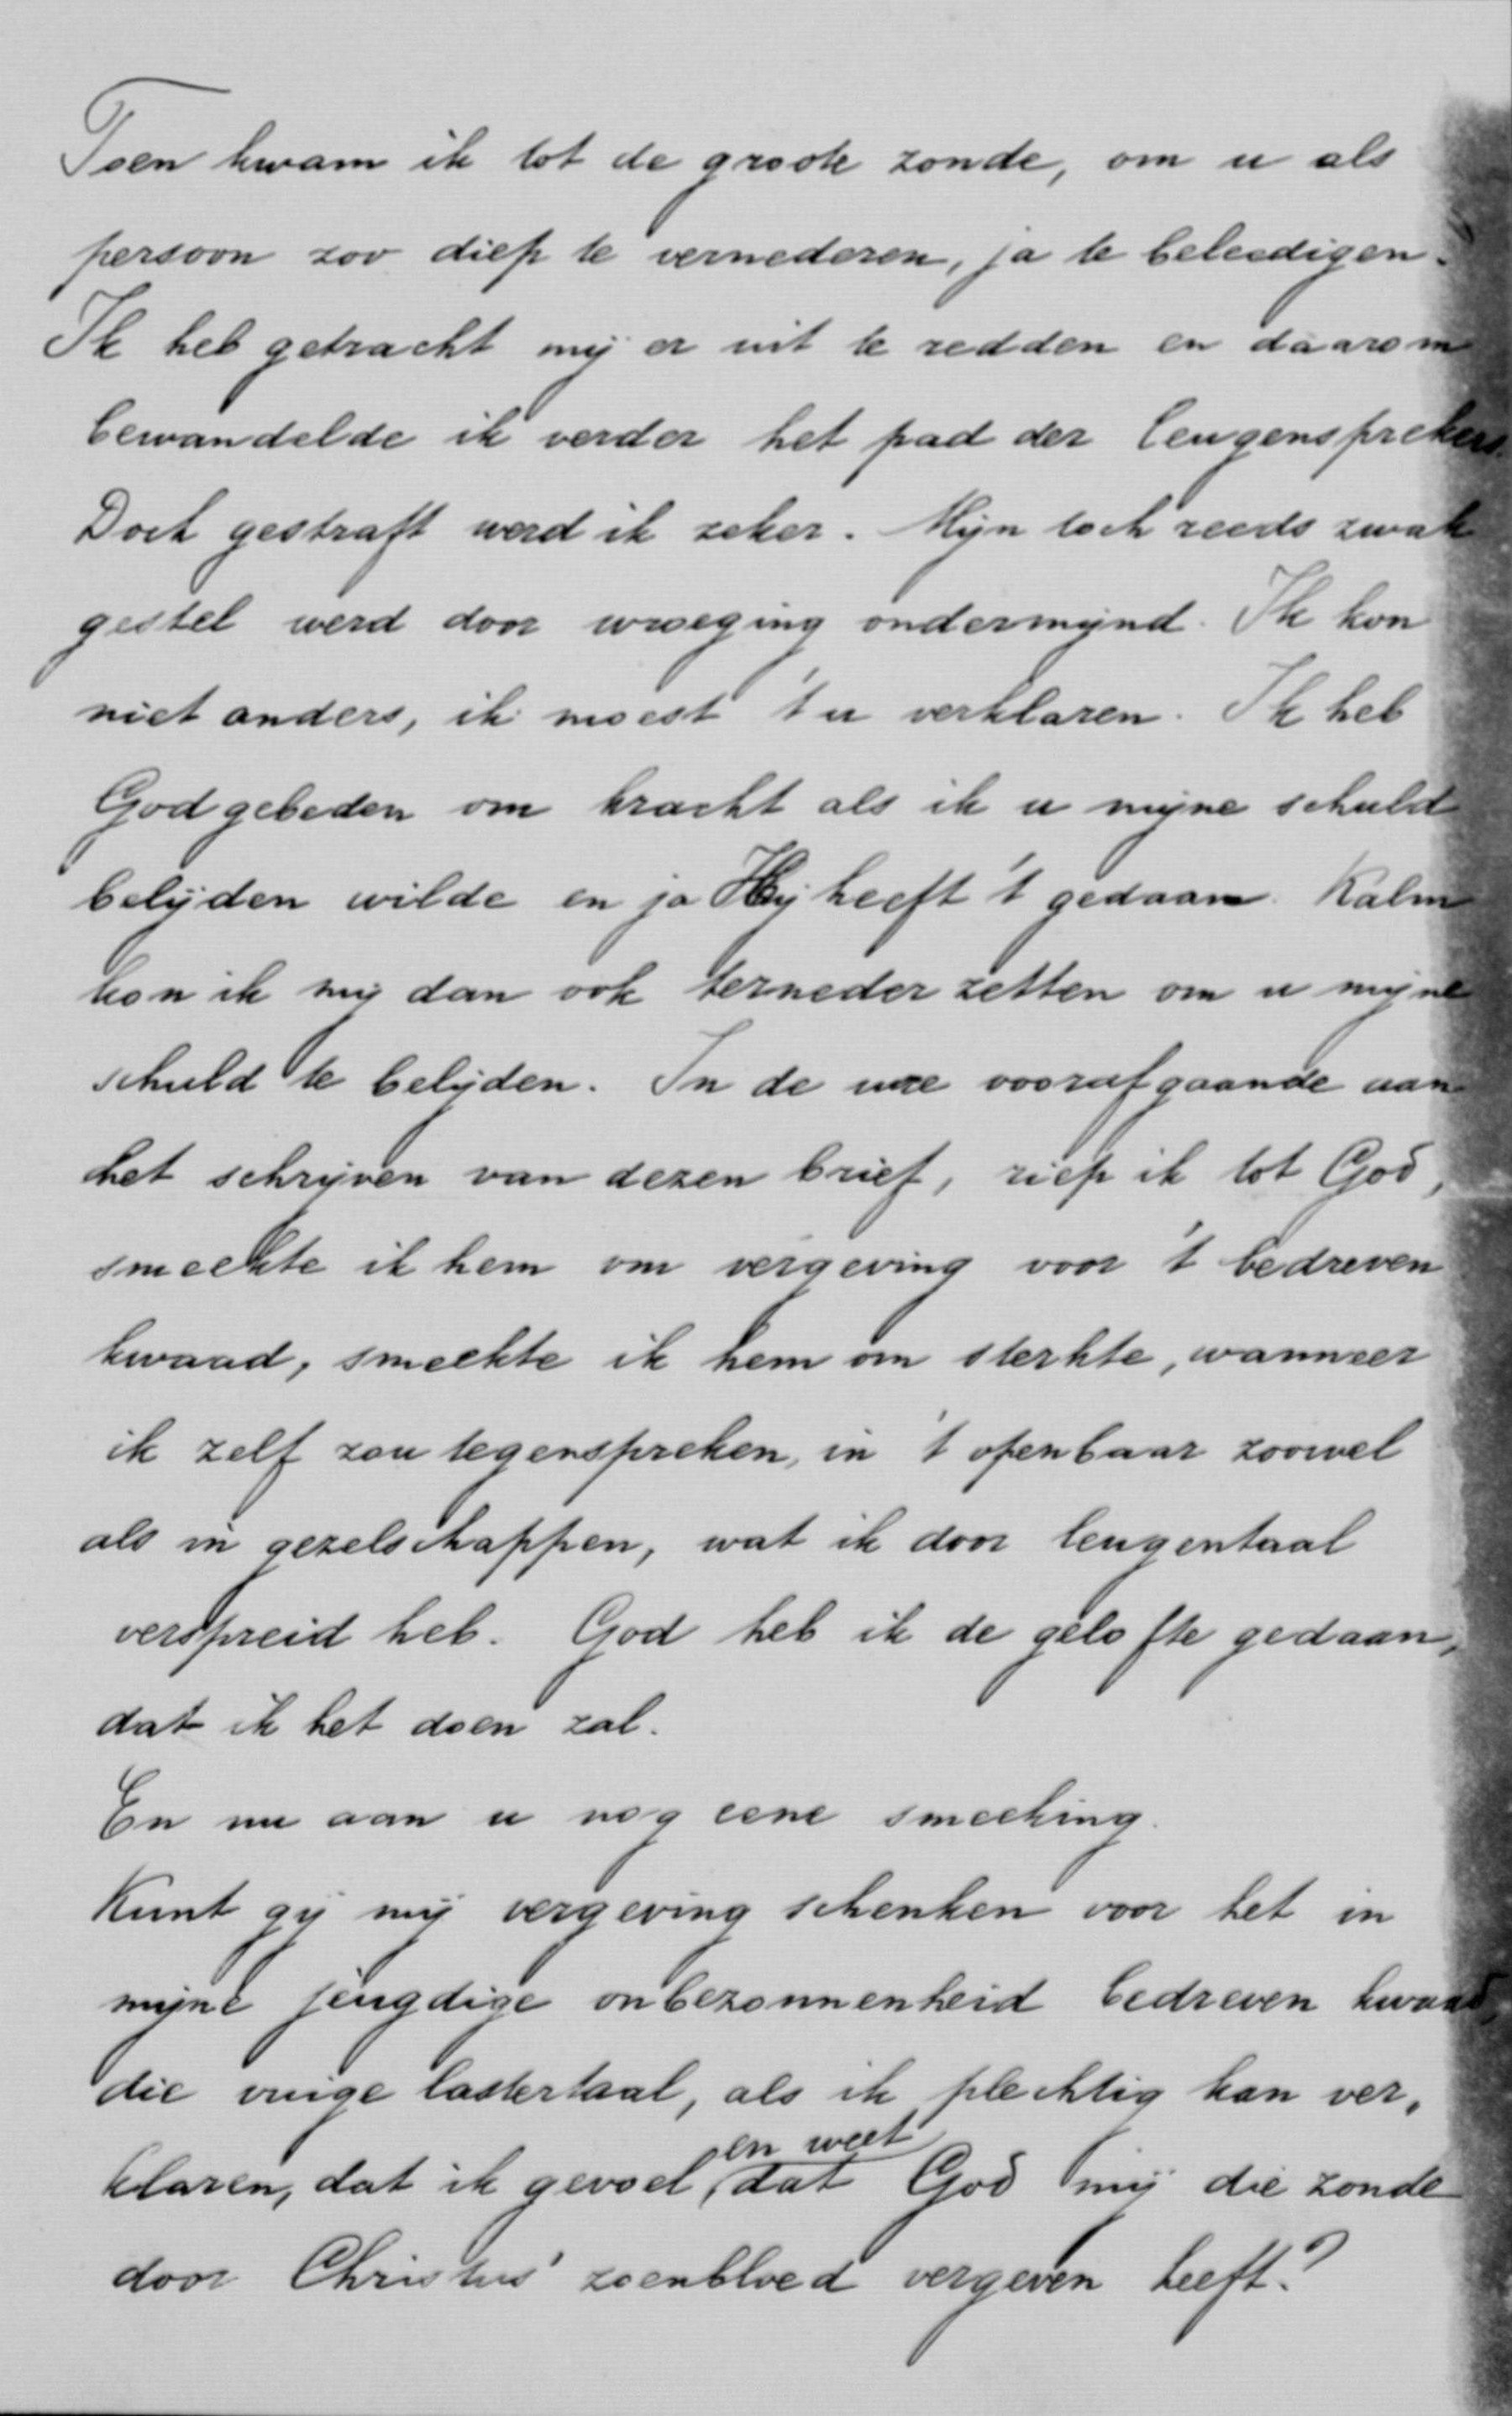 Toen kwam ik tot de groote zonde, om u als
persoon zoo diep te vernederen, ja te beleedigen.
Ik heb getracht mij er uit te redden en daarom
bewandelde ik verder het pad der leugensprekers.
Doch gestraft werd ik zeker. Mijn toch reeds zwak
gestel werd door wroeging ondermijnd. Ik kon
niet anders, ik moest 't u verklaren. Ik heb
God gebeden om kracht als ik u mijne schuld
belijden wilde en ja Hij heeft 't gedaan. Kalm
kon ik mij dan ook terneder zetten om u mijne
schuld te belijden. In de ure voorafgaande aan
het schrijven van dezen brief, riep ik tot God,
smeekte ik hem om vergeving voor 't bedreven
kwaad, smeekte ik hem om sterkte, wanneer
ik zelf zou tegenspreken, in 't openbaar zoowel
als in gezelschappen, wat ik door leugentaal
verspreid heb. God heb ik de gelofte gedaan,
dat ik het doen zal.
En nu aan u nog eene smeeking.
Kunt gij mij vergeving schenken voor het in
mijne jeugdige onbezonnenheid bedreven kwaad,
die vuige lastertaal, als ik plechtig kan ver„
klaren, dat ik gevoel, en weet dat God mij die zonde
door Christus' zoenbloed vergeven heeft?